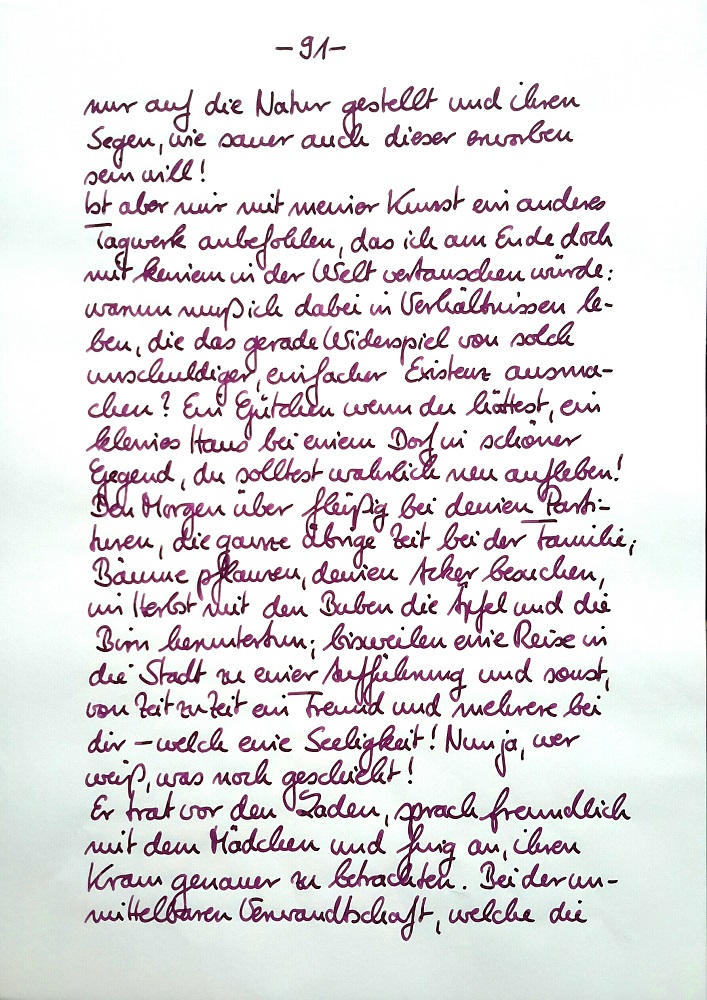 -91-
nur auf die Natur gestellt und ihren
Segen, wie sauer auch dieser erworben
sein will!
Ist aber mir mit meiner Kunst ein anderes
Tagwerk anbefohlen, das ich am Ende doch
mit keinem in der Welt vertauschen würde:
warum muß ich dabei in Verhältnissen le-
ben, die das gerade Widerspiel von solch
unschuldiger, einfacher Existenz ausma-
chen? Ein Gütchen wenn du hättest, ein
kleines Haus bei einem Dorf in schöner
Gegend, du solltest wahrlich neu aufleben!
Den Morgen über fleißig bei deinen Parti-
turen, die ganze übrige Zeit bei der Familie;
Bäume pflanzen, deinen Acker besuchen,
im Herbst mit den Buben die Äpfel und die
Birn heruntertun; bisweilen eine Reise in
die Stadt zu einer Aufführung und sonst,
von Zeit zu Zeit ein Freund und mehrere bei
dir - welch eine Seeligkeit! Nun ja, wer
weiß, was noch geschieht!
Er trat vor den Laden, sprach freundlich
mit dem Mädchen und fing an, ihren
Kram genauer zu betrachten. Bei der un-
mittelbaren Verwandtschaft, welche die